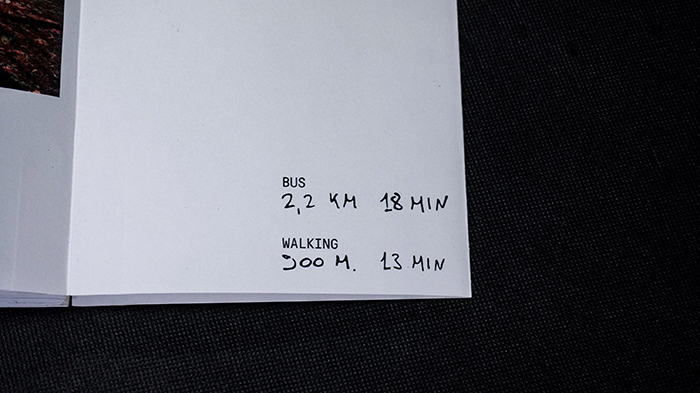 BUS
2,2 KM 18 MIN
WALKING
900 M. 13 MIN